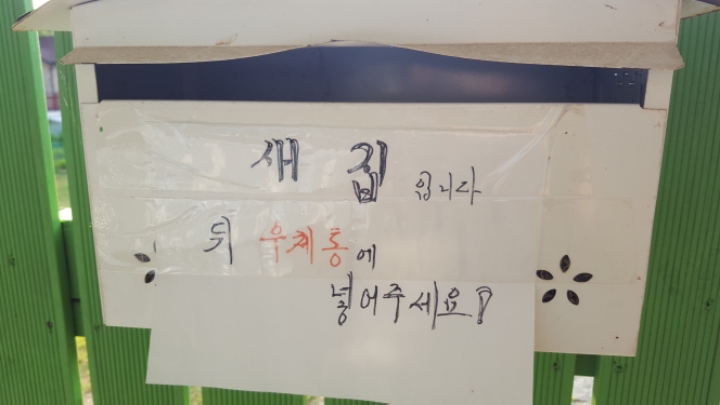 새 집 입니다
뒤 우체통에
넣어주세요!